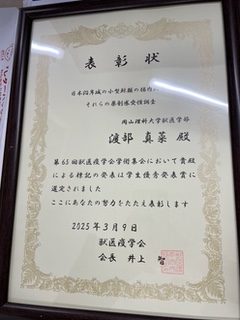 表彰状
日本沿岸域の小型鯨類の腸内
それらの薬剤感受性調査
岡山理科大学獣医学部
渡部 真菜 殿
第65回獣医疫学会学術集会において貴殿
による標記の発表は学生優秀発表賞に
選定されました
ここにあなたの努力をたたえ表彰します
2025年3月9日
獣医疫学会
会長 井上 智